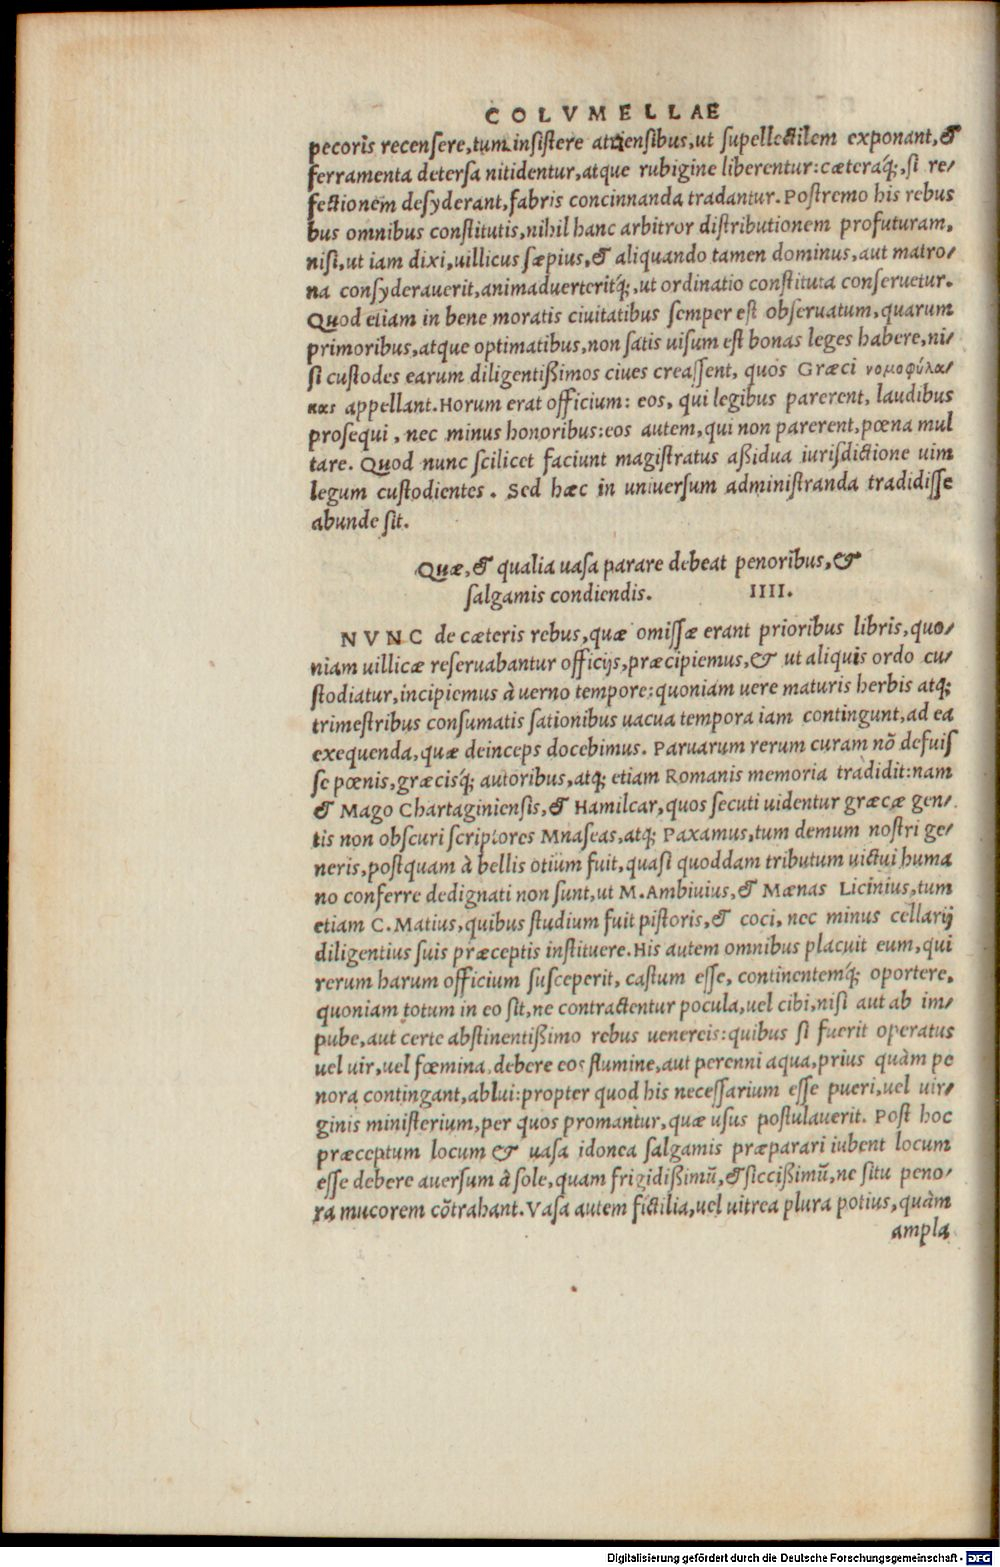 COLVMELLAE
pecoris recensere,tum insistere atriensibus,ut supellectilem exponant,&
ferramenta detersa nitidentur,atque rubigine liberentur:cæteraq́;,si re/
fectionem desyderant,fabris concinnanda tradantur. Postremo his rebus
bus omnibus constitutis,nihil hanc arbitror distributionem profuturam,
nisi,ut iam dixi,uillicus sæpius,& aliquando tamen dominus,aut matro/
na consyderauerit,animaduerteritq́;,ut ordinatio constituta conseruetur.
Quod etiam in bene moratis ciuitatibus semper est obseruatum,quarum
primoribus,atque optimatibus,non satis uisum est bonas leges habere,ni/
si custodes earum diligentißimos ciues creassent, quos Græci νομοφύλα/
κας appellant.Horum erat officium: eos, qui legibus parerent, laudibus
prosequi, nec minus honoribus:eos autem,qui non parerent,pœna mul
tare. Quod nunc scilicet faciunt magistratus aßidua iurisdictione uim
legum custodientes. Sed hæc in uniuersum administranda tradidisse
abunde sit.
Quæ,& qualia uasa parare debeat penoribus,&
salgamis condiendis. IIII.
NVNC de cæteris rebus,quæ omissæ erant prioribus libris,quo/
niam uillicæ reseruabantur officijs,præcipiemus,& ut aliquis ordo cu/
stodiatur,incipiemus à uerno tempore:quoniam uere maturis herbis atq;
trimestribus consumatis sationibus uacua tempora iam contingunt,ad ea
exequenda,quæ deinceps docebimus. Paruarum rerum curam nõ defuis
se pœnis,græcisq́; autoribus,atq; etiam Romanis memoria tradidit:nam
& Mago Chartaginiensis,& Hamilcar,quos secuti uidentur græcæ gen/
tis non obscuri scriptores Mnaseas,atq; Paxamus,tum demum nostri ge/
neris,postquam à bellis otium fuit,quasi quoddam tributum uictui huma
no conferre dedignati non sunt,ut M.Ambiuius,& Mænas Licinius,tum
etiam C.Matius,quibus studium fuit pistoris,& coci, nec minus cellarij
diligentius suis præceptis instituere.His autem omnibus placuit eum,qui
rerum harum officium susceperit, castum esse, continentemq́; oportere,
quoniam totum in eo sit,ne contractentur pocula,uel cibi,nisi aut ab im/
pube,aut certe abstinentißimo rebus uenereis:quibus si fuerit operatus
uel uir,uel fœmina,debere eos flumine,aut perenni aqua,prius quàm pe
nora contingant,ablui:propter quod his necessarium esse pueri,uel uir/
ginis ministerium,per quos promantur,quæ usus postulauerit. Post hoc
præceptum locum & uasa idonea salgamis præparari iubent locum
esse debere auersum à sole,quam frigidißimũ,& siccißimũ,ne situ peno/
ra mucorem cõtrahant.Vasa autem fictilia,uel uitrea plura potius,quàm
ampla
Digitalisierung gefördert durch die Deutsche Forschungsgemeinschaft - DFG